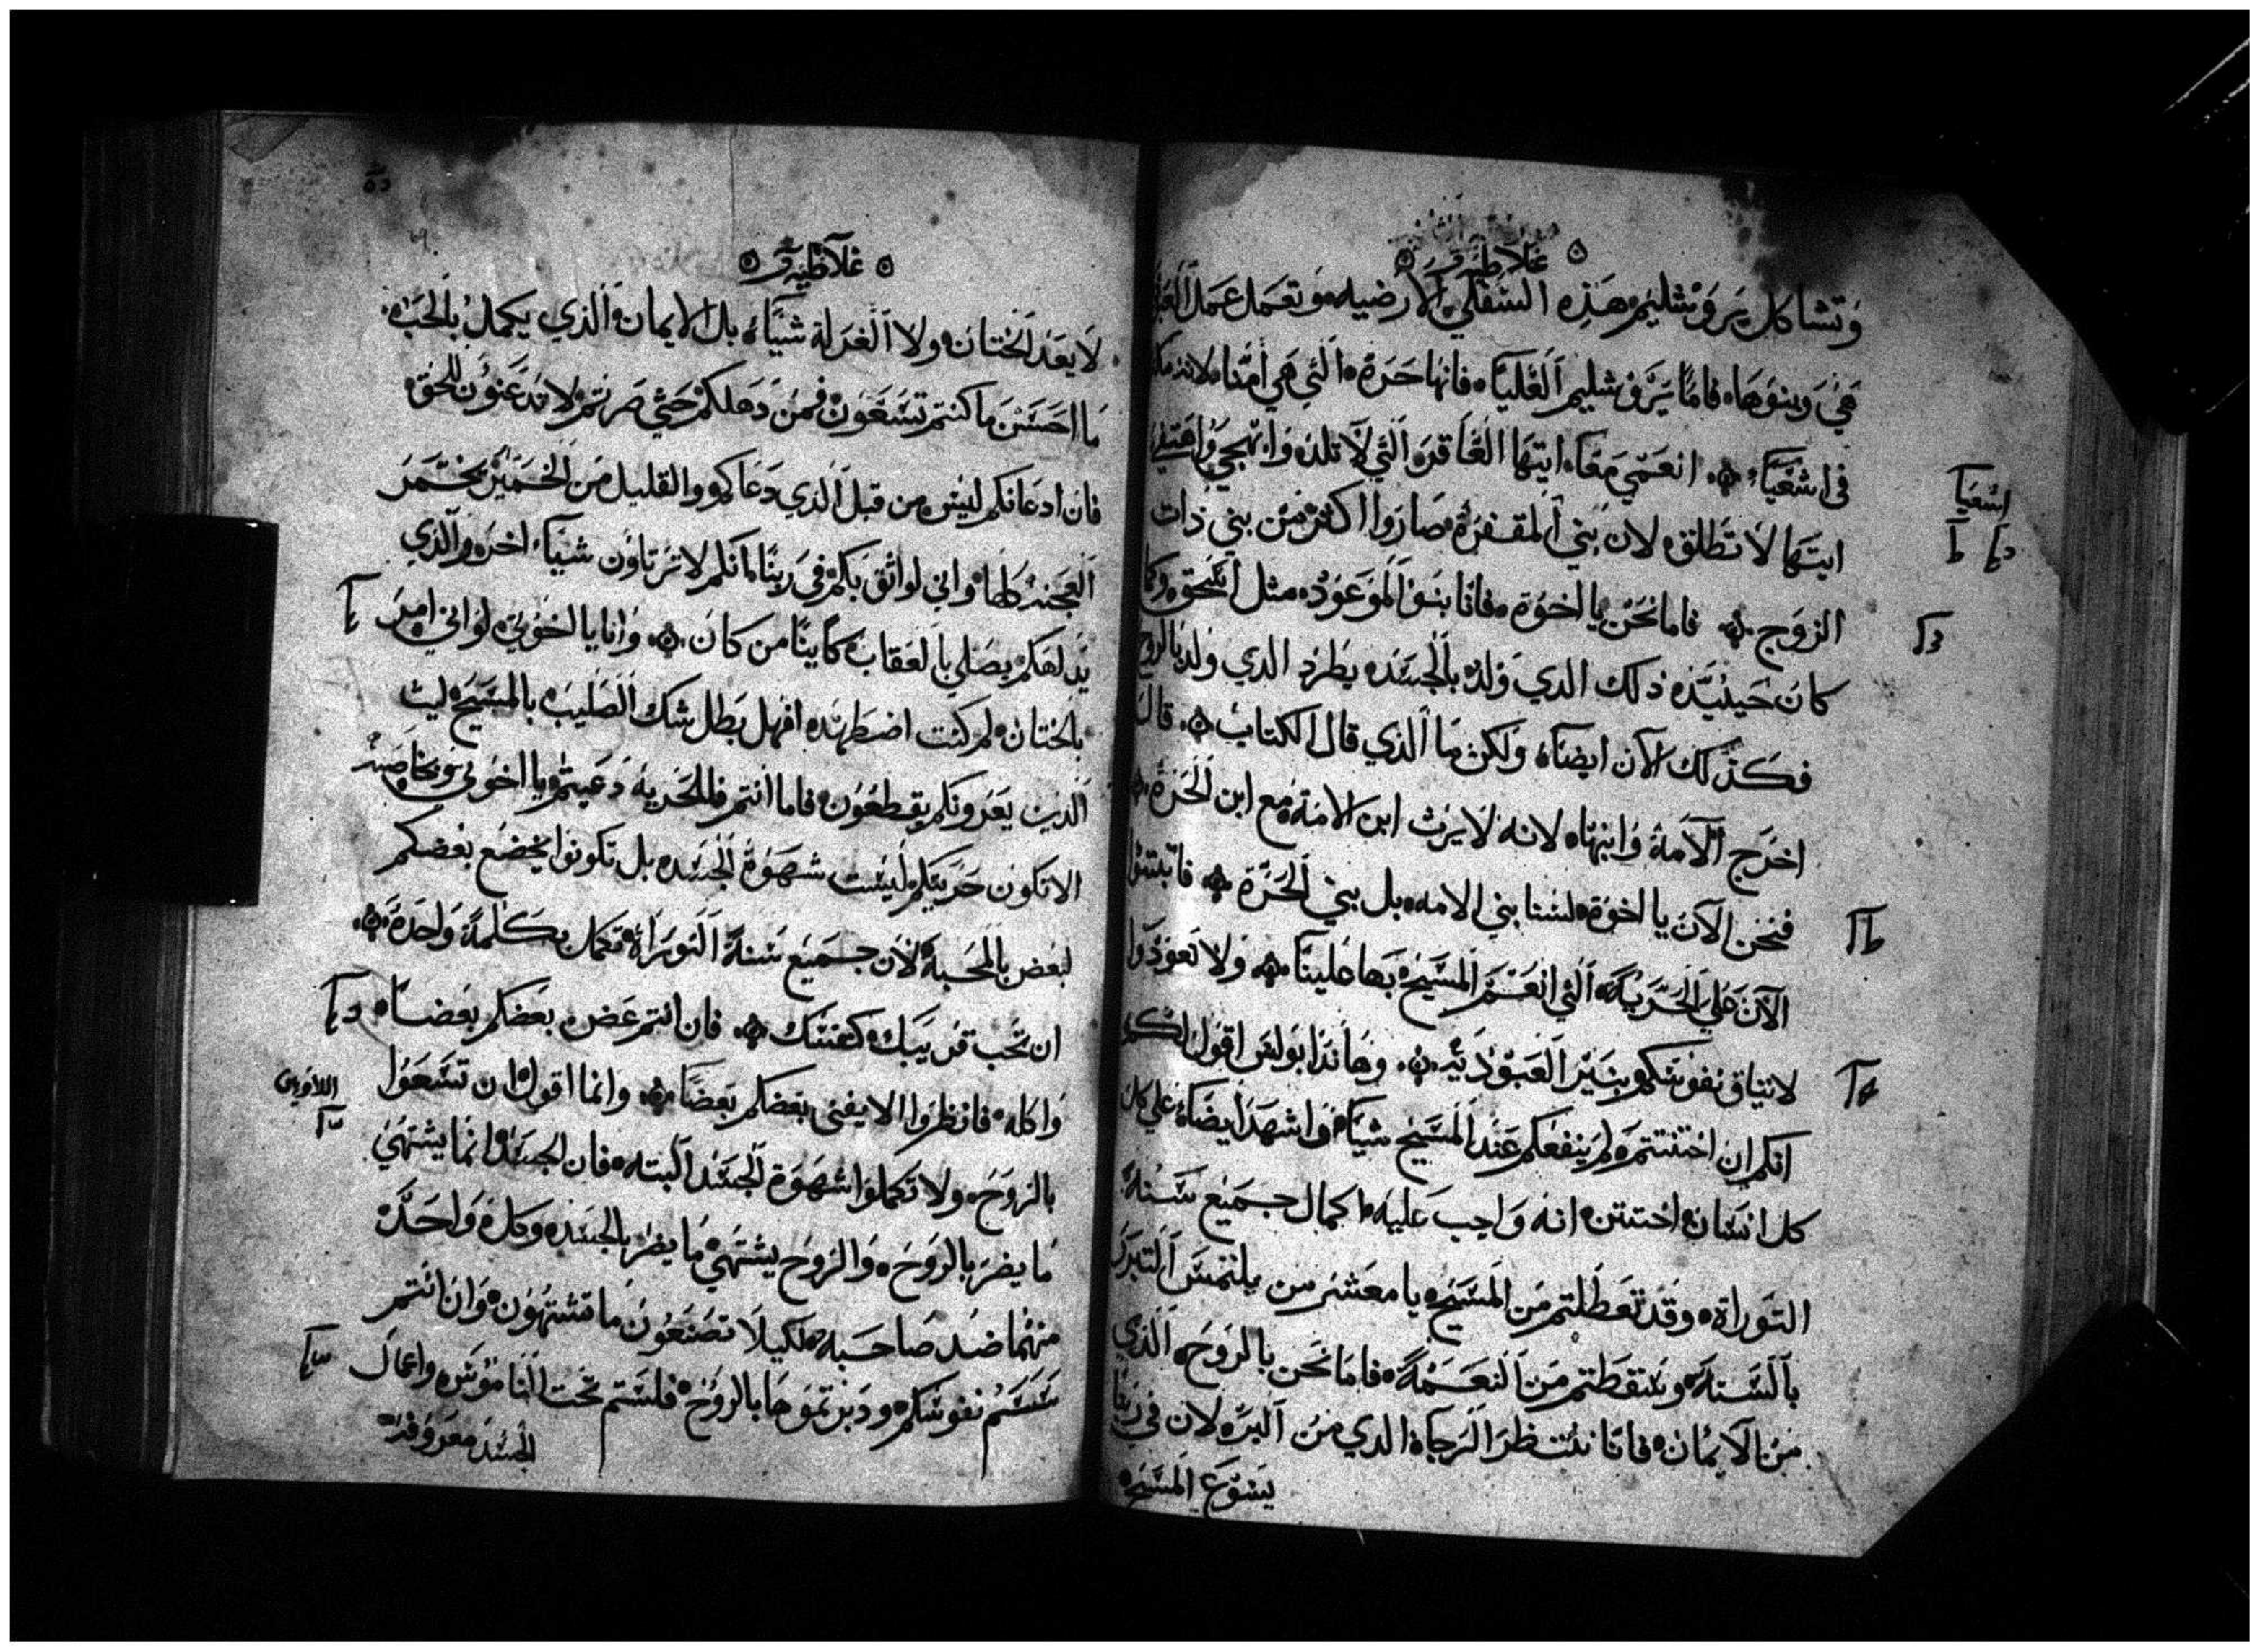 غلاطيه
وتشاكل يروشليم هذه السفلي الارضيه وتعمل عمل
هي وبنوها فاما يروشليم العليا فانها حرة التي هي امنا لانه
في اشعيا انعمي معا ايتها العاقره التي لا تلد وابتهجي
ايتها لا تطلق لان بني المقفرة صاروا اكثر من بني ذات
الزوج فاما نحن يا اخوة فانا بنوا الموعود مثل اسحق وكما
كان حينيذ ذلك الدي ولد بالجسد يطرد الدي ولد بالروح
فكذلك الآن ايضا ولكن ما الذي قال الكتاب قال
اخرج الامة وابنها لانه لا يرث ابن الامة مع ابن الحرة
فنحن الآن يا اخوة لسنا بني الامه بل بني الحرة فاتبتوا
الآن علي الحرية التي انعم المسيح بها علينا ولا تعودوا
لانيثاق نفوسكم بنير العبودية وهانذا بولس اقول لكم
انكم ان اختنتم لم ينفعكم عند المسيح شيا واشهد ايضا علي كل
كل انسان اختتن انه واجب عليه اكمال جميع سنة
التوراة وقد تعطلتم من المسيح يا معشر من يلتمس التبرر
بالسنة وسقطتم من النعمة فاما نحن بالروح الذي
من الايمان فانا ننتظر الرجاة الدي من البر لان في ربنا
يسوع المسيح
اشعيا
غلاطيه
لا يعد الختان ولا الغرلة شيا بل الايمان الذي يكمل بالحب
ما احسن ما كنتم تسعون فمن دهلكم حتي صرتم لا تدعنون للحق
فان ادعانكم ليس من قبل الذي دعاكم والقليل من الخمير يختمر
العجنه كلها واني لواثق بكم في ربنا انكم لا ترتاون شيا اخر والذي
يدلهكم يصلي بالعقاب كاينا من كان وانا يا اخوتي لو اني امر
بالختان لم كنت اضطهد افهل بطل شك الصليب بالمسيح ليت
الدين يعرونكم يقطعون فاما انتم فللحرية دعيتم يا اخوتي
الا تكون حريتكم ليست شهوة الجسد بل تكونوا يخضع بعضكم
لبعض بالمحبة لان جميع سنة التوراة تكمل بكلمة واحدة
ان تحب قريبك كنفسك فان انتم عض بعضكم بعضا
واكله فانظروا الا يفني بعضكم بعضا وانما اقول ان تسعوا
بالروح ولا تكملوا شهوة الجسد البته فان الجسد انما يشتهي
ما يضر بالروح والروح يشتهي ما يضر بالجسد وكل واحد
منهما ضد صاحبه لكيلا تصنعون ما تشتهون وان انتم
سستم نفوسكم ودبرتموها بالروح فلستم تحت الناموس واعمال
الجسد معروفة